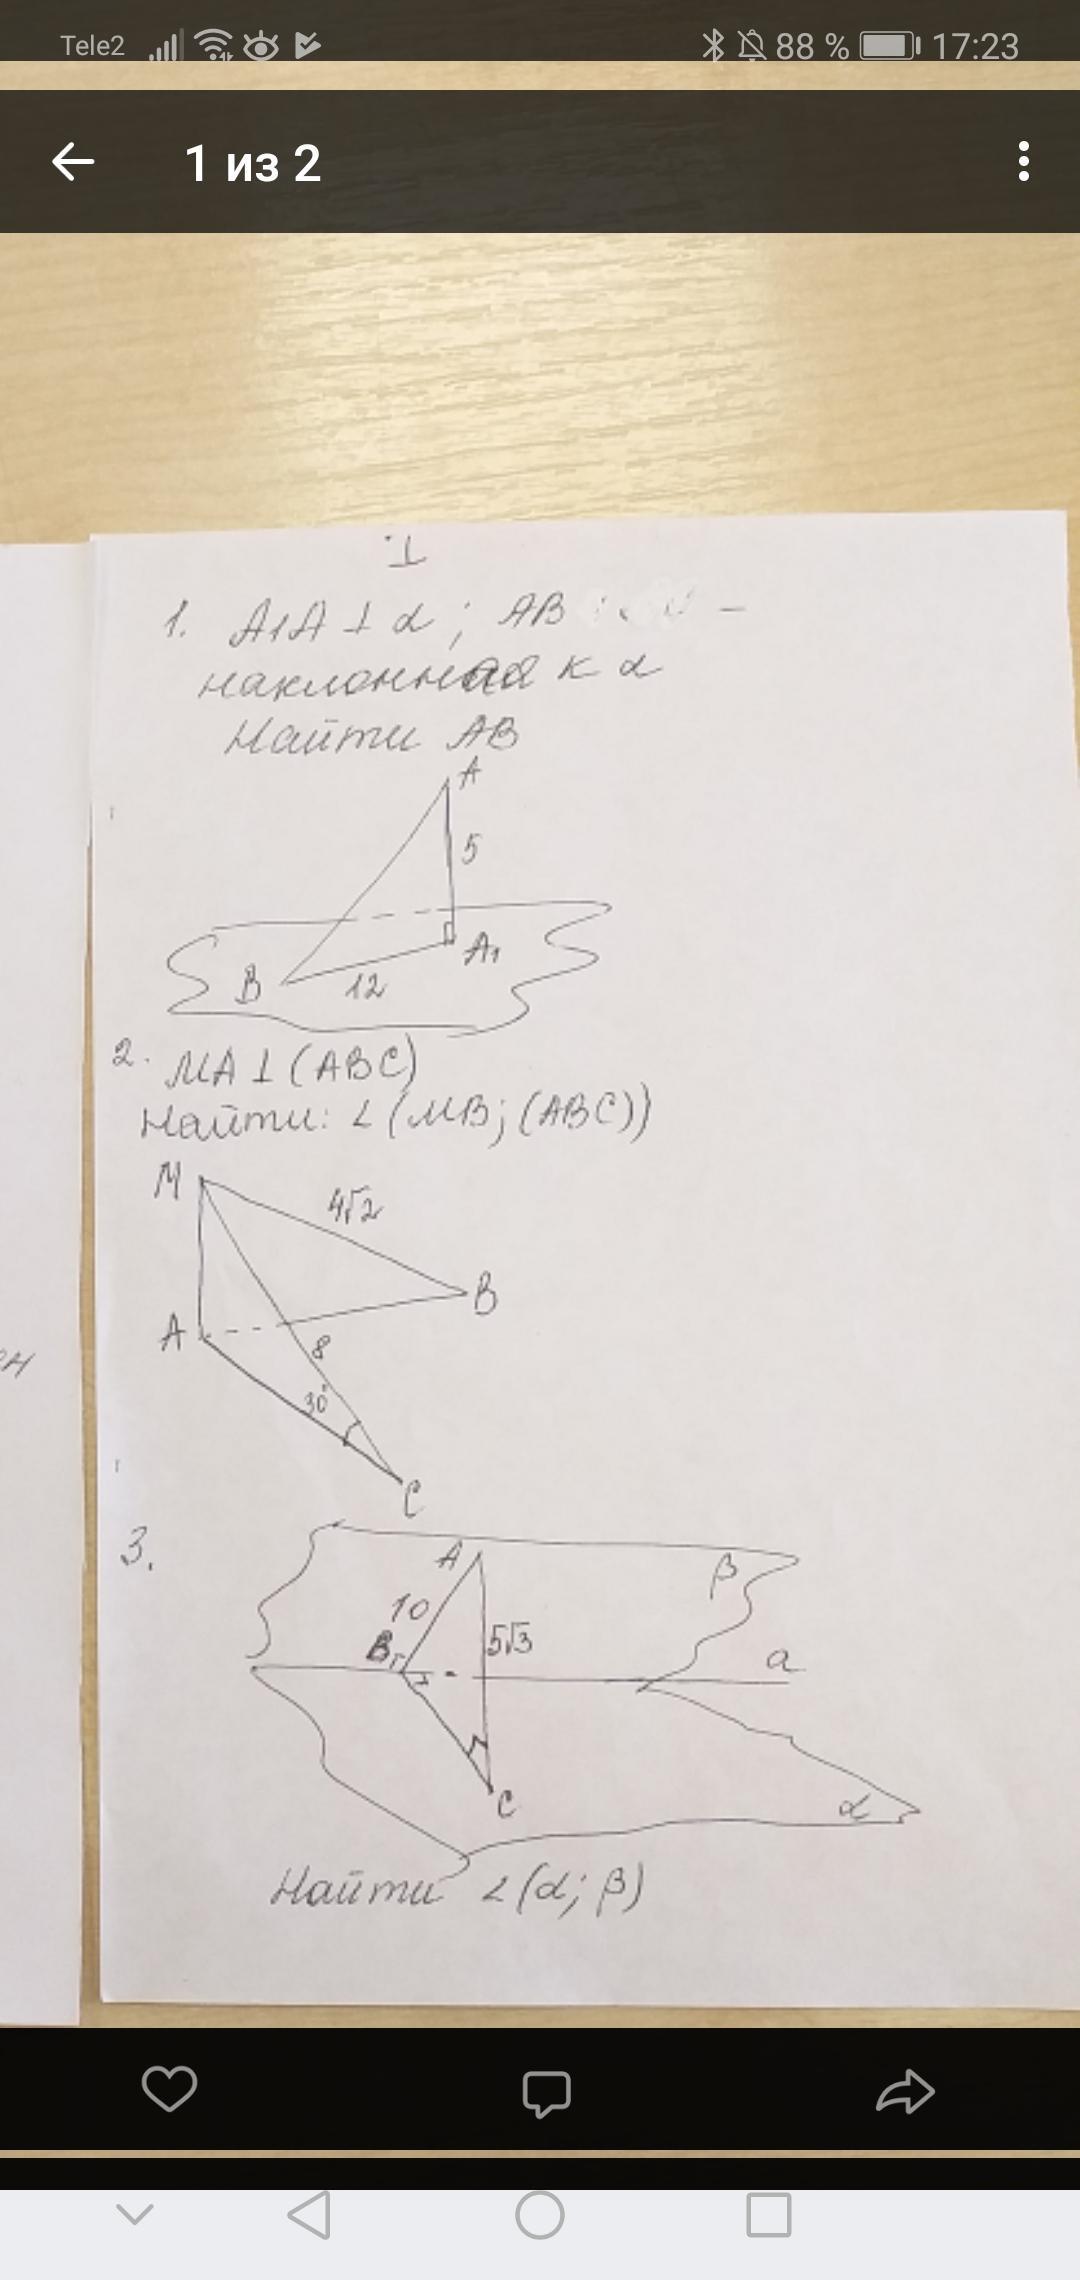 Tele2 88 % 17:23
1 из 2
I
1. A₁A ⊥ α ; AB –
наклонная к α
Найти AB
A
5
A₁
B
12
2. MA ⊥ (ABC)
Найти: ∠(MB; (ABC))
M
4√2
B
A
8
30°
C
3.
A
β
10
B
5√3
a
C
α
Найти ∠(α; β)